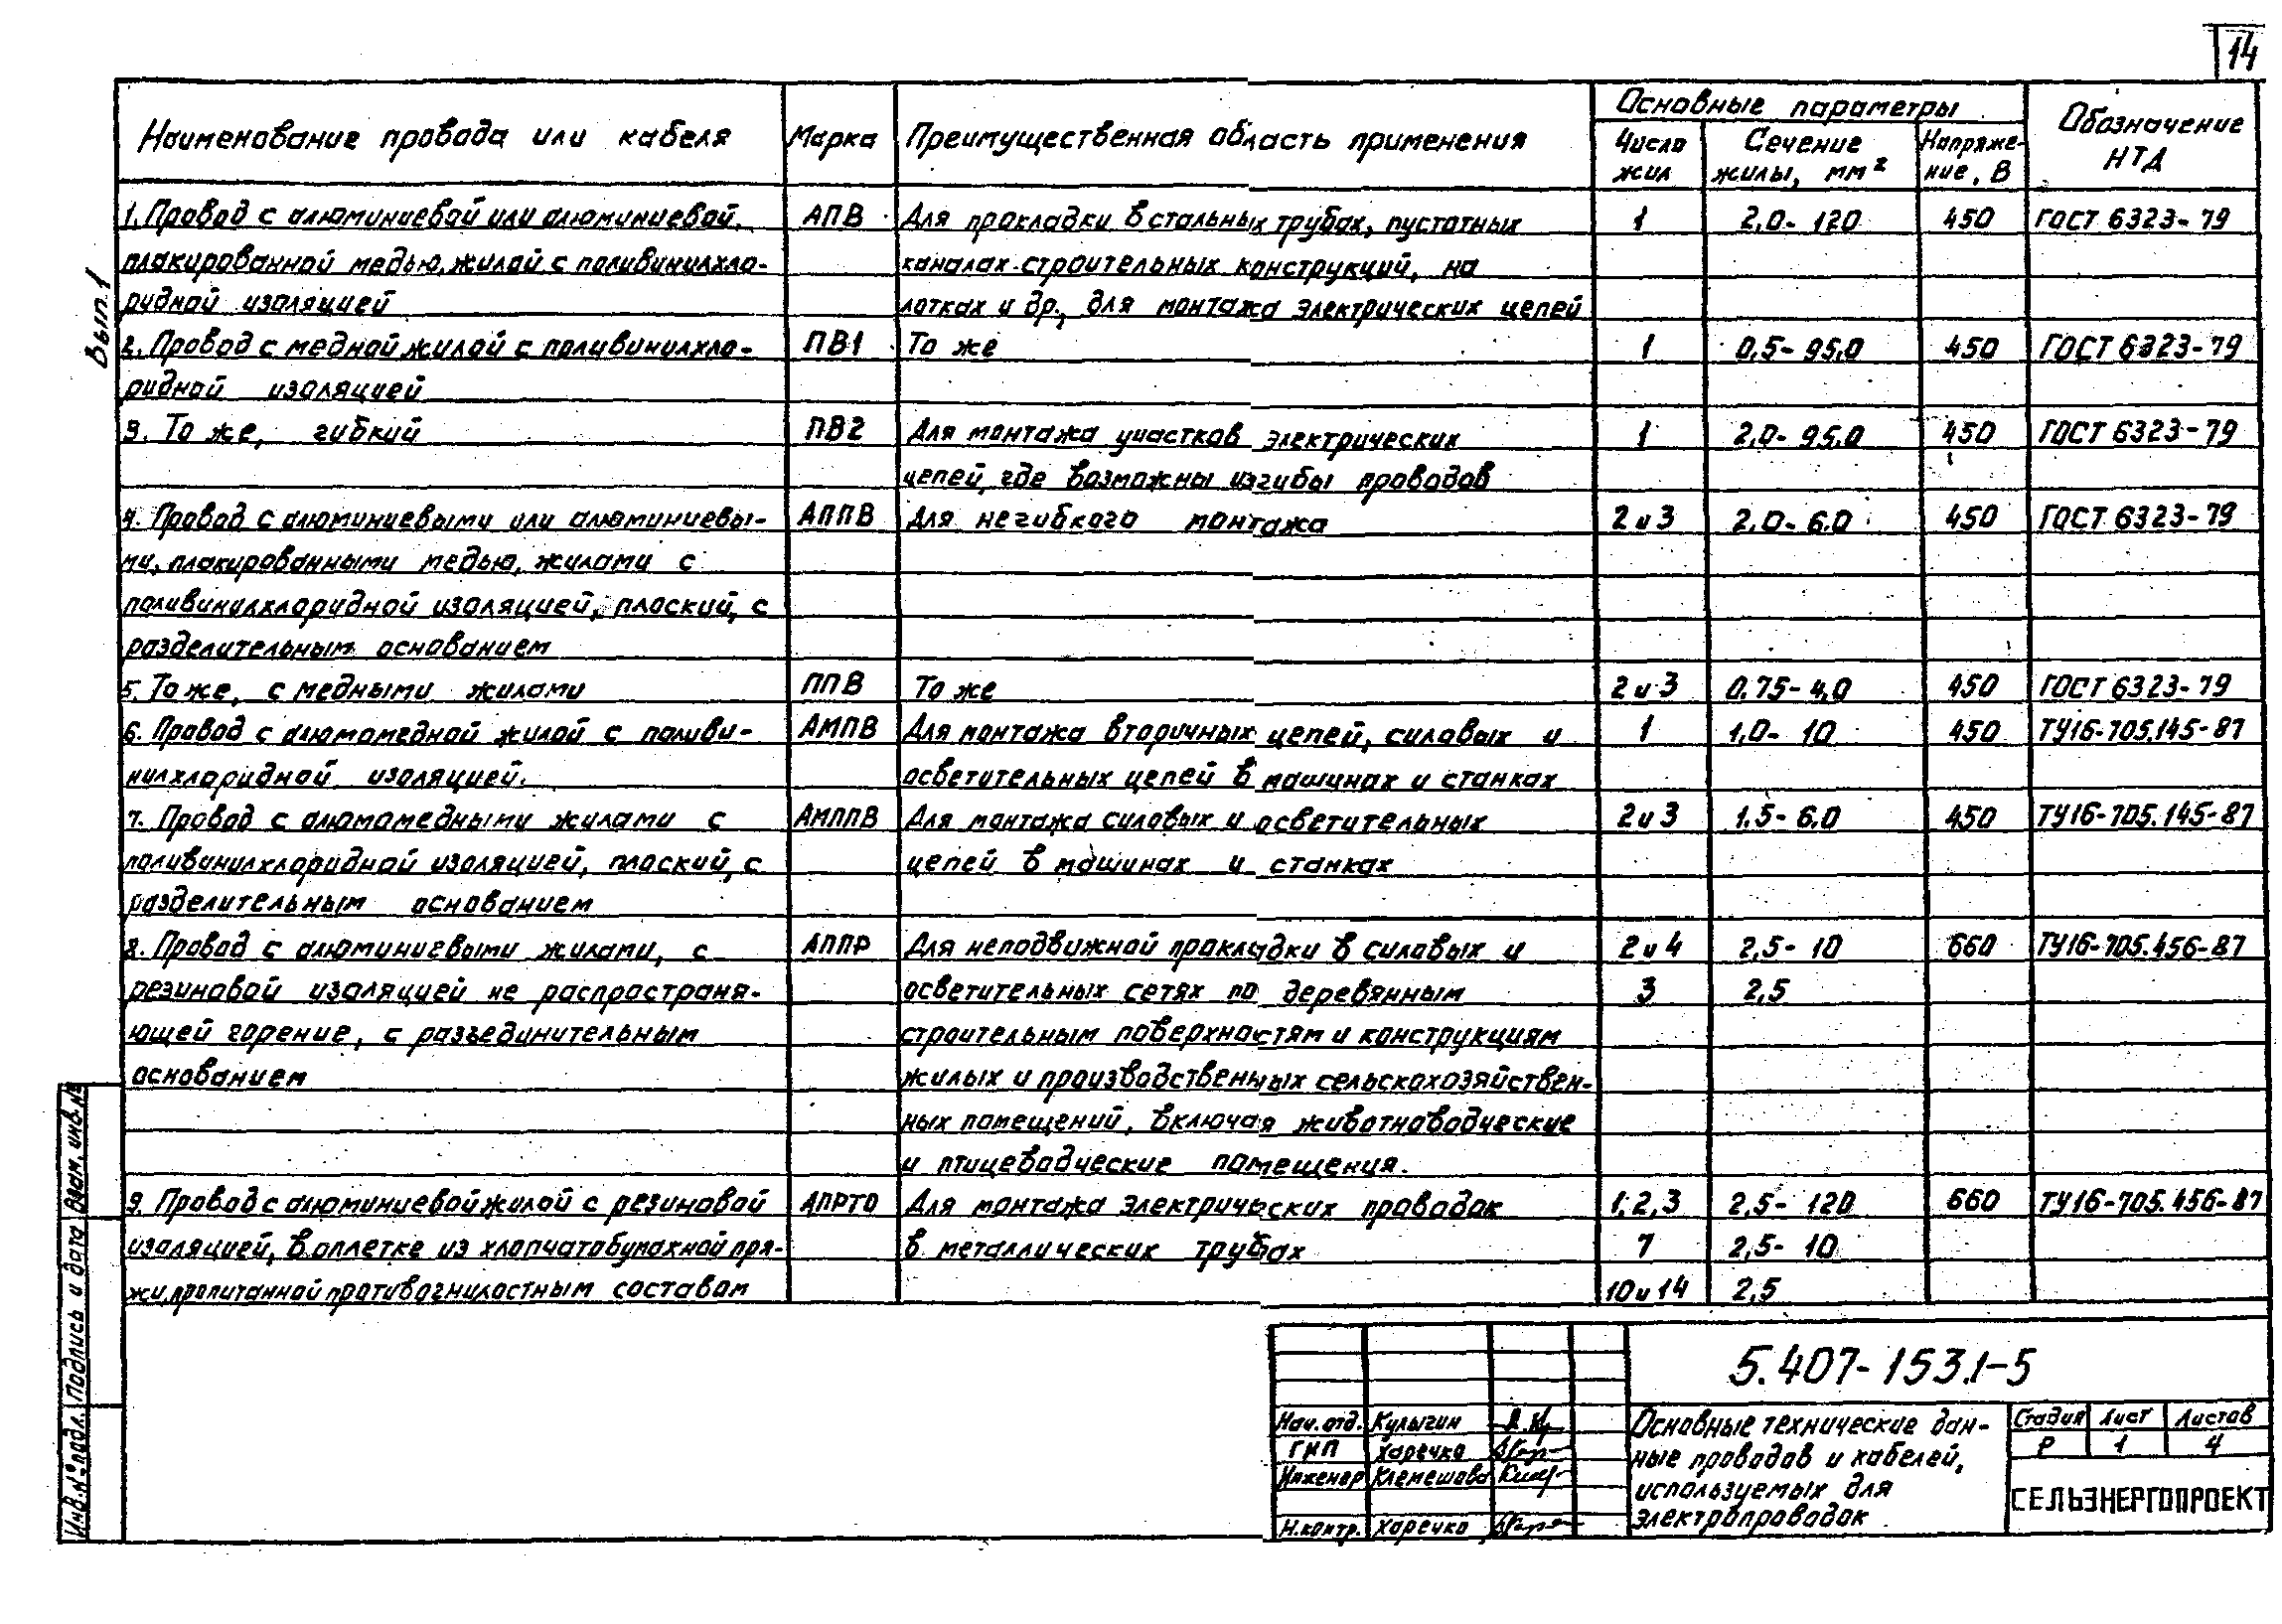 14
Вып.1
Наименование провода или кабеля Марка Преимущественная область применения Основные параметры Обозначение НТД
Число жил Сечение жилы, мм² Напряже-ние, В
1. Провод с алюминиевой или алюминиевой, АПВ Для прокладки в стальных трубах, пустотных 1 2,0- 120 450 ГОСТ 6323-79
плакированной медью, жилой с поливинилхло- каналах строительных конструкций, на
ридной изоляцией лотках и др., для монтажа электрических цепей
2. Провод с медной жилой с поливинилхло- ПВ1 То же 1 0,5- 95,0 450 ГОСТ 6323-79
ридной изоляцией
3. То же, гибкий ПВ2 Для монтажа участков электрических 1 2,0- 95,0 450 ГОСТ 6323-79
цепей, где возможны изгибы проводов
4. Провод с алюминиевыми или алюминиевы- АППВ Для негибкого монтажа 2 и 3 2,0- 6,0 450 ГОСТ 6323-79
ми, плакированными медью, жилами с
поливинилхлоридной изоляцией, плоский, с
разделительным основанием
5. То же, с медными жилами ППВ То же 2 и 3 0,75- 4,0 450 ГОСТ 6323-79
6. Провод с алюмомедной жилой с поливи- АМПВ Для монтажа вторичных цепей, силовых и 1 1,0- 10 450 ТУ16-705.145-87
нилхлоридной изоляцией. осветительных цепей в машинах и станках
7. Провод с алюмомедными жилами с АМППВ Для монтажа силовых и осветительных 2 и 3 1,5- 6,0 450 ТУ16-705.145-87
поливинилхлоридной изоляцией, плоский, с цепей в машинах и станках
разделительным основанием
8. Провод с алюминиевыми жилами, с АППР Для неподвижной прокладки в силовых и 2 и 4 2,5- 10 660 ТУ16-705.456-87
резиновой изоляцией не распространя- осветительных сетях по деревянным 3 2,5
ющей горение, с разъединительным строительным поверхностям и конструкциям
основанием жилых и производственных сельскохозяйствен-
ных помещений, включая животноводческие
и птицеводческие помещения.
9. Провод с алюминиевой жилой с резиновой АПРТО Для монтажа электрических проводок 1, 2, 3 2,5- 120 660 ТУ16-705.456-87
изоляцией, в оплетке из хлопчатобумажной пря- в металлических трубах 7 2,5- 10
жи, пропитанной противогнилостным составом 10 и 14 2,5
Инв.№ подл. Подпись и дата Взам. инв.№
5.407-153.1-5
Нач. отд. Кулыгин
ГИП Харечко
Инженер Клемешова
Н.контр. Харечко
Основные технические дан-
ные проводов и кабелей,
используемых для
электропроводок
Стадия Лист Листов
Р 1 4
СЕЛЬЭНЕРГОПРОЕКТ